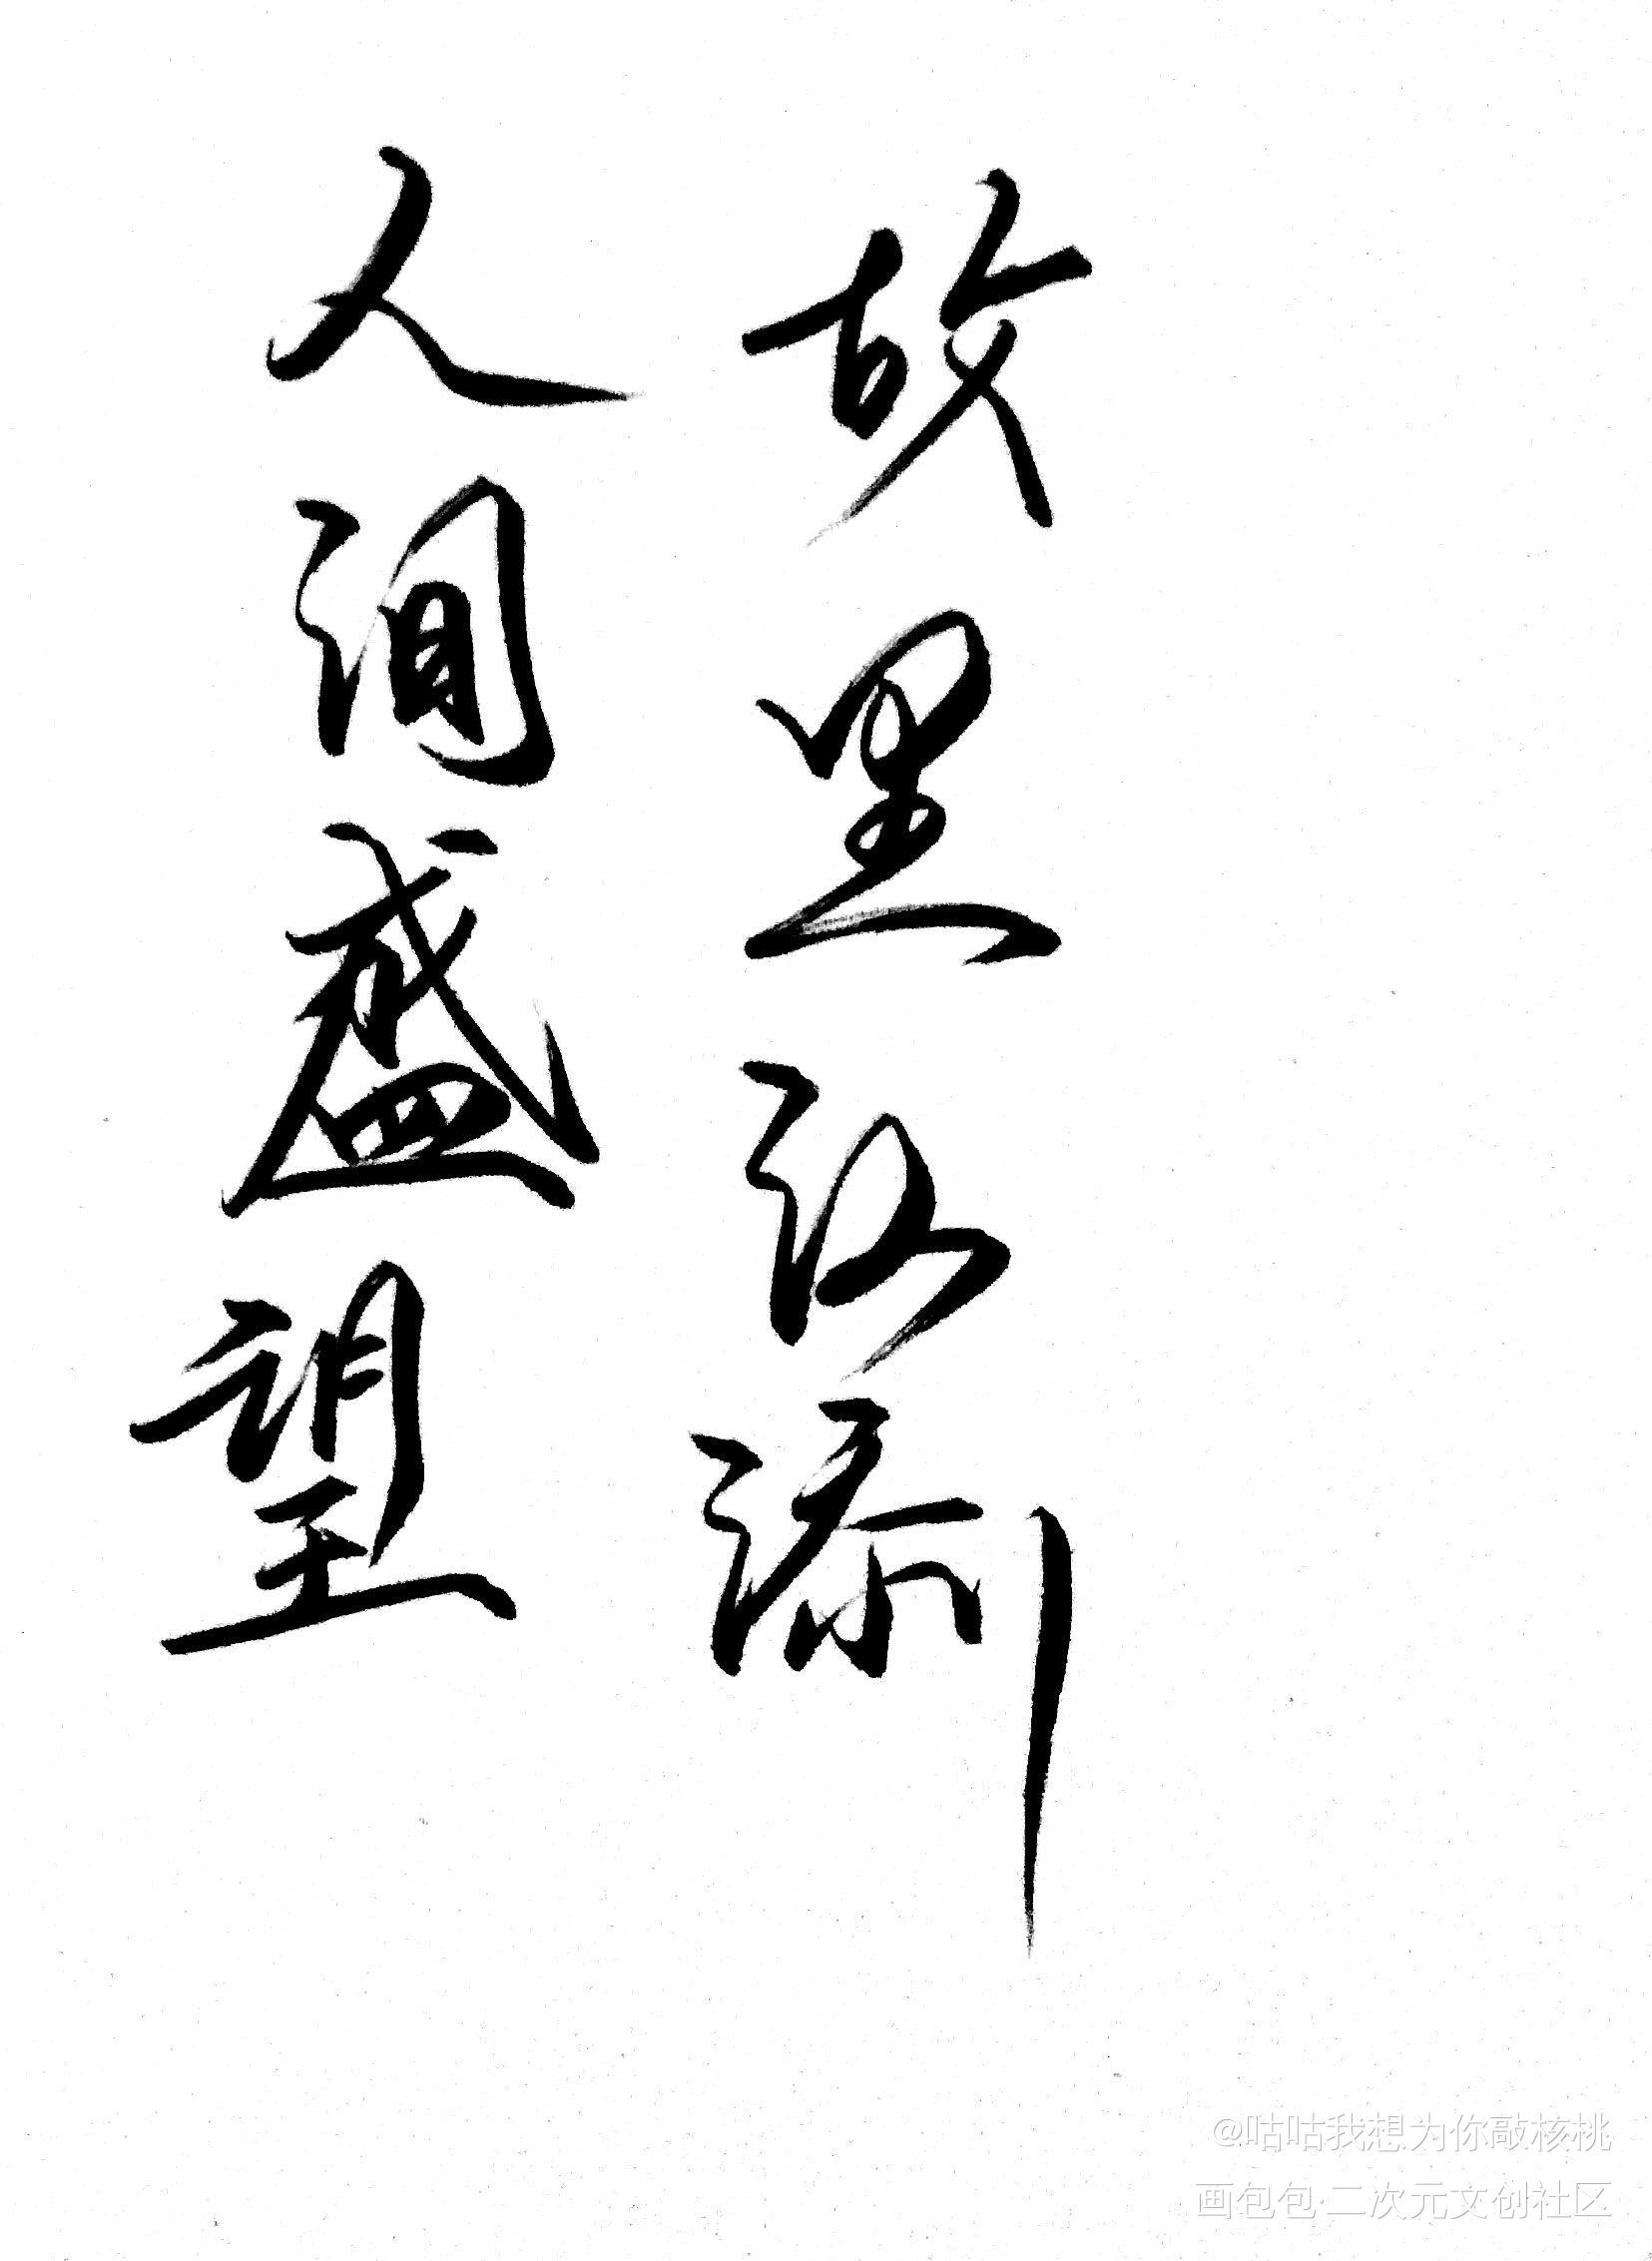 故里江添
人间盛望
@咕咕我想为你敲核桃
画包包·二次元文创社区